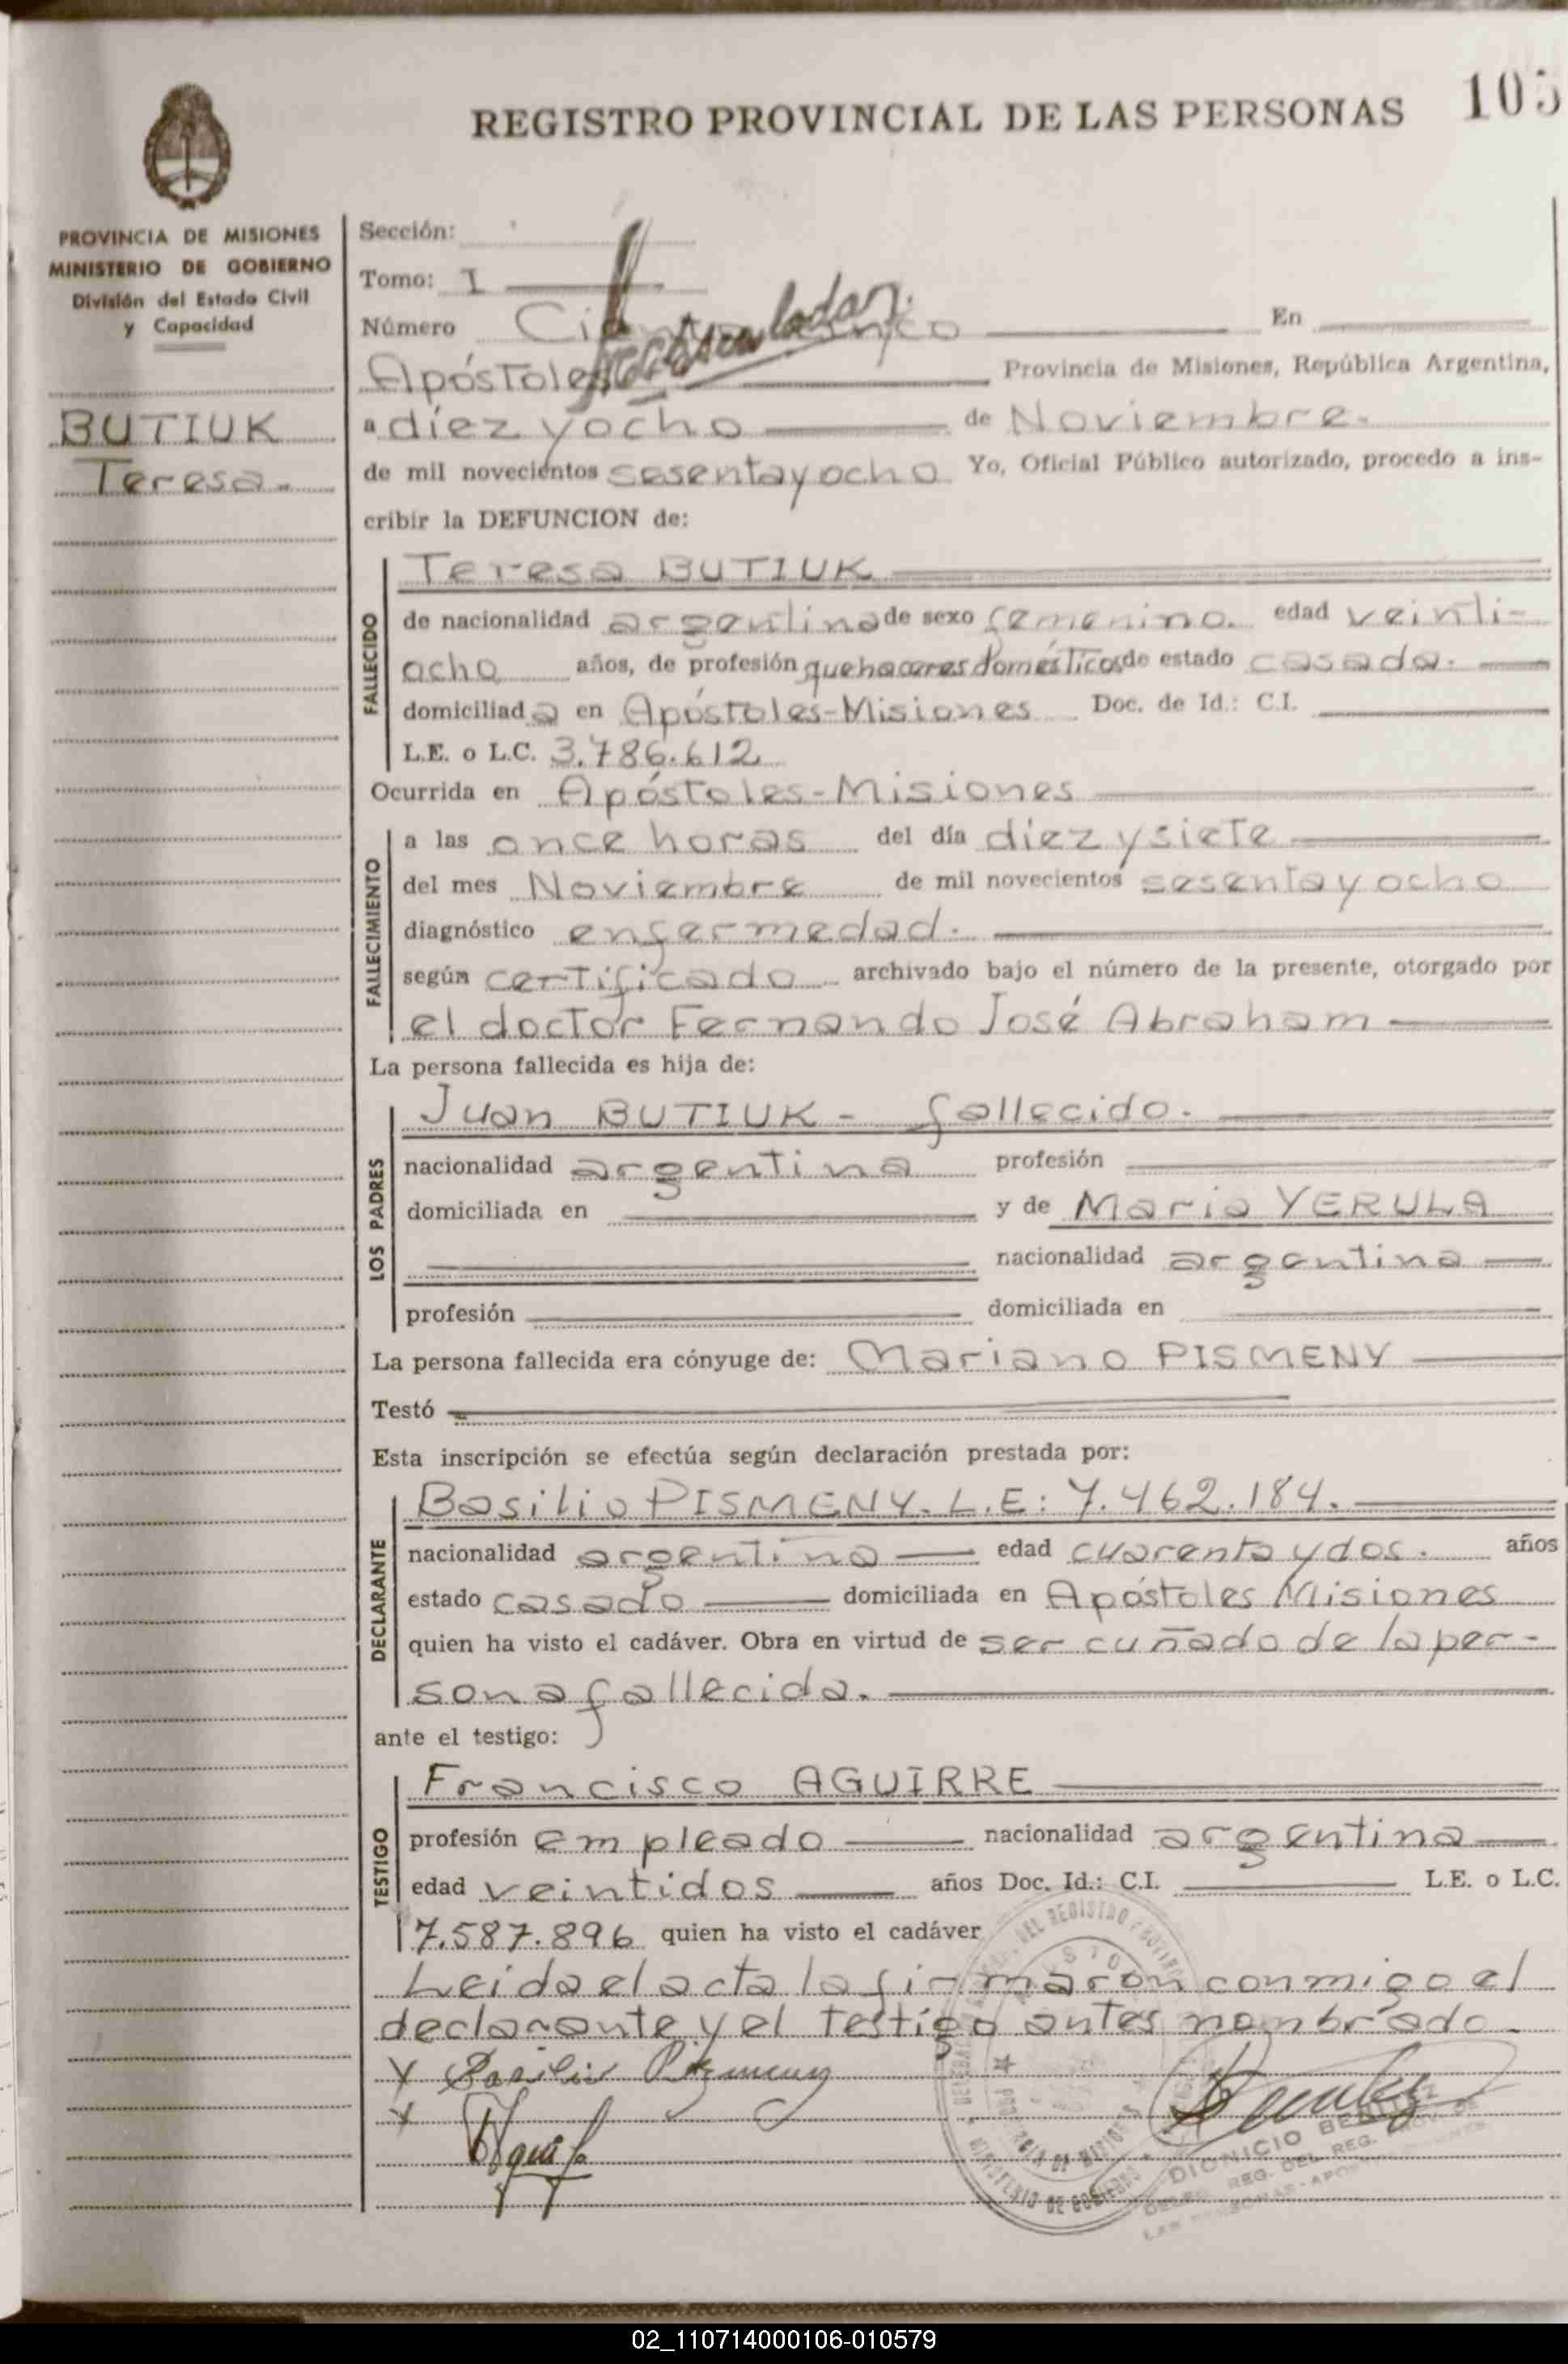 105
REGISTRO PROVINCIAL DE LAS PERSONAS
PROVINCIA DE MISIONES
MINISTERIO DE GOBIERNO
División del Estado Civil
y Capacidad
BUTIUK
Teresa.
Sección:
Tomo: I
Número Ciento cinco En
Apóstoles Provincia de Misiones, República Argentina,
a diez y ocho de Noviembre.
de mil novecientos sesenta y ocho Yo, Oficial Público autorizado, procedo a ins-
cribir la DEFUNCION de:
FALLECIDO
Teresa BUTIUK
de nacionalidad argentina de sexo femenino. edad veinti-
ocho años, de profesión quehaceres domésticos de estado casada.
domiciliada en Apóstoles-Misiones Doc. de Id.: C.I.
L.E. o L.C. 3.786.612
Ocurrida en Apóstoles-Misiones
FALLECIMIENTO
a las once horas del día diez y siete
del mes Noviembre de mil novecientos sesenta y ocho
diagnóstico enfermedad.
según certificado archivado bajo el número de la presente, otorgado por
el doctor Fernando José Abraham
La persona fallecida es hija de:
LOS PADRES
Juan BUTIUK - fallecido.
nacionalidad argentina profesión
domiciliada en y de María YERULA
nacionalidad argentina
profesión domiciliada en
La persona fallecida era cónyuge de: Mariano PISMENY
Testó
Esta inscripción se efectúa según declaración prestada por:
DECLARANTE
Basilio PISMENY. L.E: 7.462.184.
nacionalidad argentina edad cuarenta y dos. años
estado casado domiciliada en Apóstoles Misiones
quien ha visto el cadáver. Obra en virtud de ser cuñado de la per-
sona fallecida.
ante el testigo:
TESTIGO
Francisco AGUIRRE
profesión empleado nacionalidad argentina
edad veintidos años Doc. Id.: C.I. L.E. o L.C.
7.587.896 quien ha visto el cadáver
Leida el acta la firmaron conmigo el
declarante y el testigo antes nombrado.
Basilio Pismeny
DIONICIO BENITEZ
REG. DEL REG. PROV. DE
02_110714000106-010579